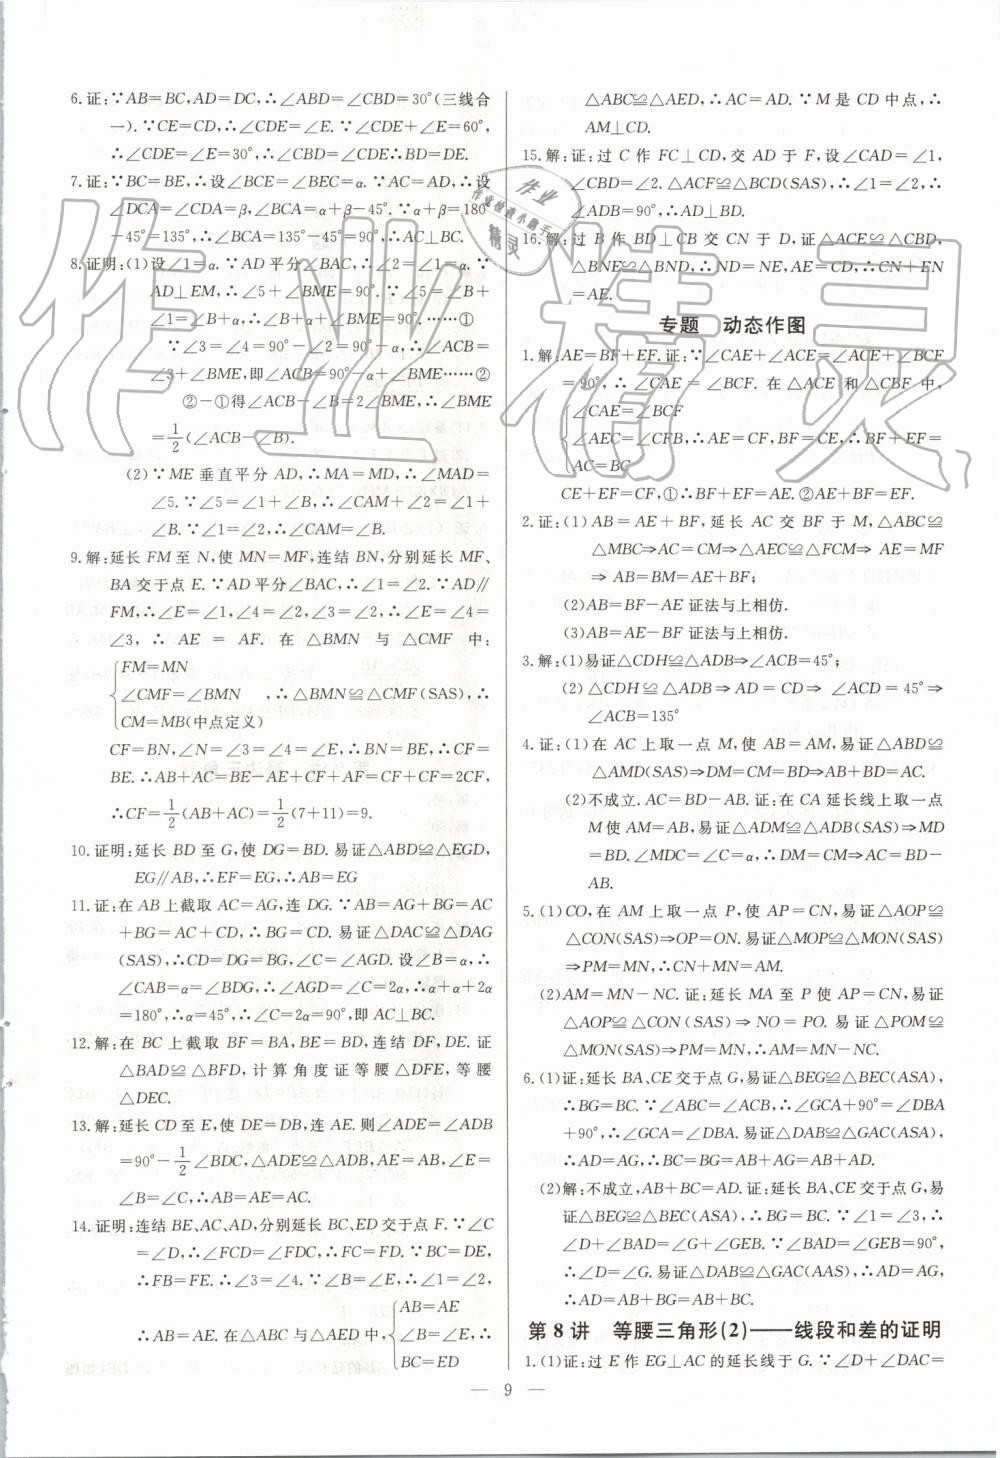 6.证:∵AB=BC,AD=DC,∴∠ABD=∠CBD=30°(三线合
一).∵CE=CD,∴∠CDE=∠E.∵∠CDE+∠E=60°,
∴∠CDE=∠E=30°,∴∠CBD=∠CDE∴BD=DE.
7.证:∵BC=BE,∴设∠BCE=∠BEC=α.∵AC=AD,∴设
∠DCA=∠CDA=β,∠BCA=α+β-45°.∵α+β=180°
-45°=135°,∴∠BCA=135°-45°=90°,∴AC⊥BC.
8.证明:(1)设∠1=α.∵AD平分∠BAC,∴∠2=∠1=α.∵
AD⊥EM,∴∠5+∠BME=90°.∵∠5=∠B+
∠1=∠B+α,∴∠B+α+∠BME=90°.……①
∵∠3=∠4=90°-∠2=90°-α,∴∠ACB=
∠3+∠BME,即∠ACB=90°-α+∠BME……②
②-①得∠ACB-∠B=2∠BME,∴∠BME
=1/2(∠ACB-∠B).
(2)∵ME垂直平分AD,∴MA=MD,∴∠MAD
=∠5.∵∠5=∠1+∠B,∴∠CAM+∠2=∠1+
∠B.∵∠1=∠2,∴∠CAM=∠B.
9.解:延长FM至N,使MN=MF,连结BN,分别延长MF、
BA交于点E.∵AD平分∠BAC,∴∠1=∠2.∵AD∥
FM,∴∠E=∠1,∠4=∠2,∠3=∠2,∴∠E=∠4=
∠3,∴AE=AF.在△BMN与△CMF中:
{FM=MN
∠CMF=∠BMN ,∴△BMN≌△CMF(SAS),∴
CM=MB(中点定义)
CF=BN,∠N=∠3=∠4=∠E,∴BN=BE,∴CF=
BE.∴AB+AC=BE-AE+CF+AF=CF+CF=2CF,
∴CF=1/2(AB+AC)=1/2(7+11)=9.
10.证明:延长BD至G,使DG=BD.易证△ABD≌△EGD,
EG∥AB,∴EF=EG,∴AB=EG
11.证:在AB上截取AC=AG,连DG.∵AB=AG+BG=AC
+BG=AC+CD,∴BG=CD.易证△DAC≌△DAG
(SAS),∴CD=DG=BG,∠C=∠AGD.设∠B=α,∴
∠CAB=α=∠BDG,∴∠AGD=∠C=2α,∴α+α+2α
=180°,∴α=45°,∴∠C=2α=90°,即AC⊥BC.
12.解:在BC上截取BF=BA,BE=BD,连结DF,DE.证
△BAD≌△BFD,计算角度证等腰△DFE,等腰
△DEC.
13.解:延长CD至E,使DE=DB,连AE.则∠ADE=∠ADB
=90°-1/2∠BDC,△ADE≌△ADB,AE=AB,∠E=
∠B=∠C,∴AB=AE=AC.
14.证明:连结BE、AC、AD,分别延长BC、ED交于点F.∵∠C
=∠D,∴∠FCD=∠FDC,∴FC=FD.∵BC=DE,
∴FB=FE.∴∠3=∠4.∵∠B=∠E,∴∠1=∠2,
∴AB=AE.在△ABC与△AED中,{AB=AE
∠B=∠E ,∴
BC=ED
△ABC≌△AED,∴AC=AD.∵M是CD中点,∴
AM⊥CD.
15.解:证:过C作FC⊥CD,交AD于F,设∠CAD=∠1,
∠CBD=∠2.△ACF≌△BCD(SAS),∴∠1=∠2,∴
∠ADB=90°,∴AD⊥BD.
16.解:过B作BD⊥CB交CN于D,证△ACE≌△CBD,
△BNE≌△BND,∴ND=NE,AE=CD,∴CN+EN
=AE.
专题 动态作图
1.解:AE=BF+EF.证:∵∠CAE+∠ACE=∠ACE+∠BCF
=90°,∴∠CAE=∠BCF.在△ACE和△CBF中,
{∠CAE=∠BCF
∠AEC=∠CFB,∴AE=CF,BF=CE,∴BF+EF=
AC=BC
CE+EF=CF,①∴BF+EF=AE.②AE+BF=EF.
2.证:(1)AB=AE+BF,延长AC交BF于M,△ABC≌
△MBC⇒AC=CM⇒△AEC≌△FCM⇒AE=MF
⇒AB=BM=AE+BF;
(2)AB=BF-AE证法与上相仿.
(3)AB=AE-BF证法与上相仿.
3.解:(1)易证△CDH≌△ADB⇒∠ACB=45°;
(2)△CDH≌△ADB⇒AD=CD⇒∠ACD=45°⇒
∠ACB=135°
4.证:(1)在AC上取一点M,使AB=AM,易证△ABD≌
△AMD(SAS)⇒DM=CM⇒AB+BD=AC.
(2)不成立.AC=BD-AB.证:在CA延长线上取一点
M使AM=AB,易证△ADM≌△ADB(SAS)⇒MD
=BD.∠MDC=∠C=α,∴DM=CM⇒AC=BD-
AB.
5.(1)CO,在AM上取一点P,使AP=CN,易证△AOP≌
△CON(SAS)⇒OP=ON.易证△MOP≌△MON(SAS)
⇒PM=MN,∴CN+MN=AM.
(2)AM=MN-NC.证:延长MA至P使AP=CN,易证
△AOP≌△CON(SAS)⇒NO=PO.易证△POM≌
△MON(SAS)⇒PM=MN,∴AM=MN-NC.
6.(1)证:延长BA、CE交于点G,易证△BEG≌△BEC(ASA),
∴BG=BC.∵∠BAC=∠ACB,∴∠GCA+90°=∠DBA
+90°,∴∠GCA=∠DBA.易证△DAB≌△GAC(ASA),
∴AD=AG,∴BC=BG=AB+AG=AB+AD.
(2)解:不成立,AB+BC=AD.证:延长BA、CE交于点G,易
证△BEG≌△BEC(ASA),∴BG=BC.∵∠1=∠3,∴
∠D+∠BAD=∠G+∠GEB.∵∠BAD=∠GEB=90°,
∴∠D=∠G.易证△DAB≌△GAC(AAS),∴AD=AG,
∴AD=AG=AB+BG=AB+BC.
第8讲 等腰三角形(2)——线段和差的证明
1.(1)证:过E作EG⊥AC的延长线于G.∵∠D+∠DAC=
— 9 —
作业精灵
作业
精灵